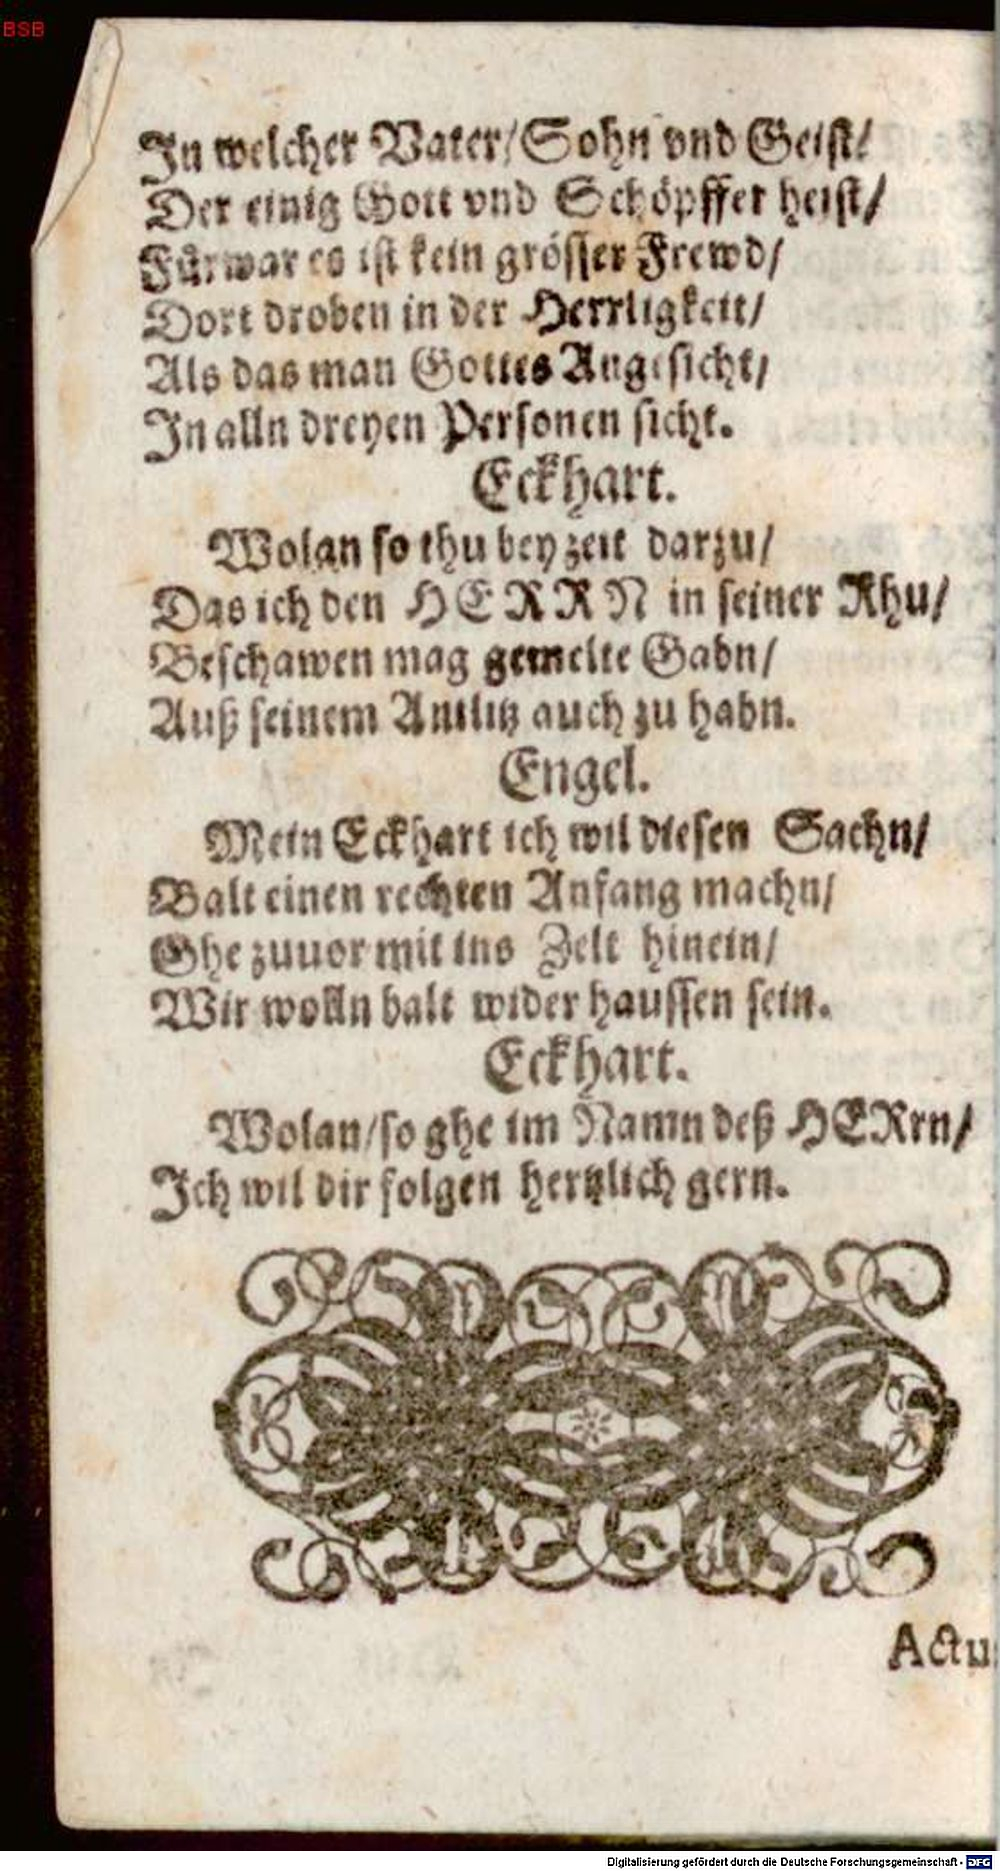 BSB
In welcher Vater/Sohn vnd Geist/
Der einig Gott vnd Schöpffer heist/
Fürwar es ist kein grösser Frewd/
Dort droben in der Herrligkeit/
Als das man Gottes Angesicht/
In alln dreyen Personen sicht.
Eckhart.
Wolan so thu bey zeit darzu/
Das ich den HERRN in seiner Rhu/
Beschawen mag gemelte Gabn/
Auß seinem Antlitz auch zu habn.
Engel.
Mein Eckhart ich wil diesen Sachn/
Balt einen rechten Anfang machn/
Ghe zuuor mit ins Zelt hinein/
Wir wolln balt wider haussen sein.
Eckhart.
Wolan/so ghe im Namn deß HERrn/
Ich wil dir folgen hertzlich gern.
Actus
Digitalisierung gefördert durch die Deutsche Forschungsgemeinschaft - DFG